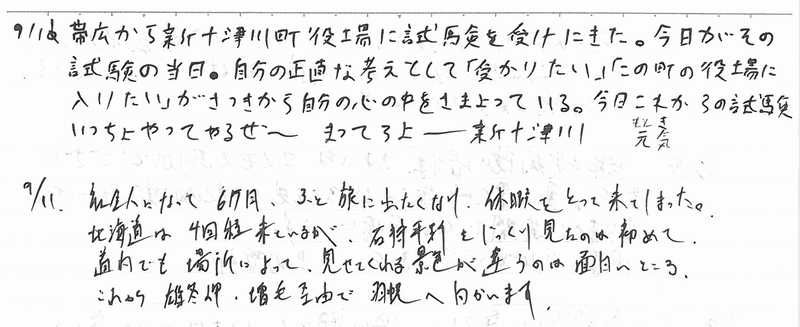 9/10 帯広から新十津川町役場に試験を受けにきた。今日がその
試験の当日。自分の正直な考えとして「受かりたい」「この町の役場に
入りたい」がさっきから自分の心の中をさまよっている。今日これからの試験
いっちょやってやるぜ〜 まってろよ――新十津川 元気
9/11. 社会人になって6ヶ月、ふと旅に出たくなり、休暇をとって来てしまった。
北海道は4回程来ているが、石狩平野をじっくり見たのは初めて。
道内でも場所によって、見せてくれる景色が違うのは面白いところ。
これから雄冬岬・増毛経由で羽幌へ向かいます。